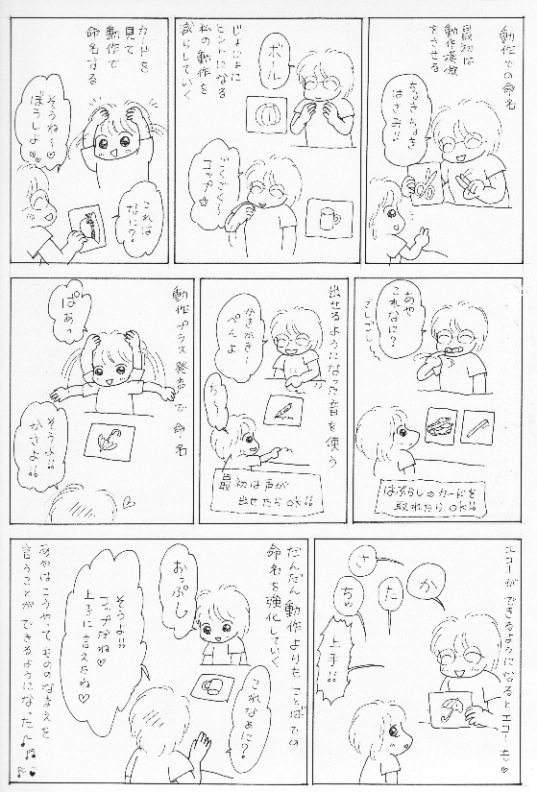 動作での命名
最初は
動作模倣
をさせる
ちょきちょき
はさみ!!
じょじょに
ヒントになる
私の動作を
減らしていく
ボール
ごくごく〜
コップ
カードを
見て
動作で
命名する
そうね〜
ぼうしよ♡
これは
なに?
あや
これなに?
ごしごし
はぶらしのカードを
取れたらOK!!
出せるようになった音を使う
かきかき〜
ぺんよ
最初は声が
出せたらOK!!
動作プラス発声で命名
ぱあっ
そうよ!!
かさよ!!
エコーができるようになるとエコーも♡
か
さ
た
ちゅ
上手!!
だんだん動作よりもことばでの
命名を強化していく
おっぷし
これなぁに?
そうよ!!
コップだね♡
上手に言えたね♡
あやはこうやってもののなまえを
言うことができるようになった♪♫